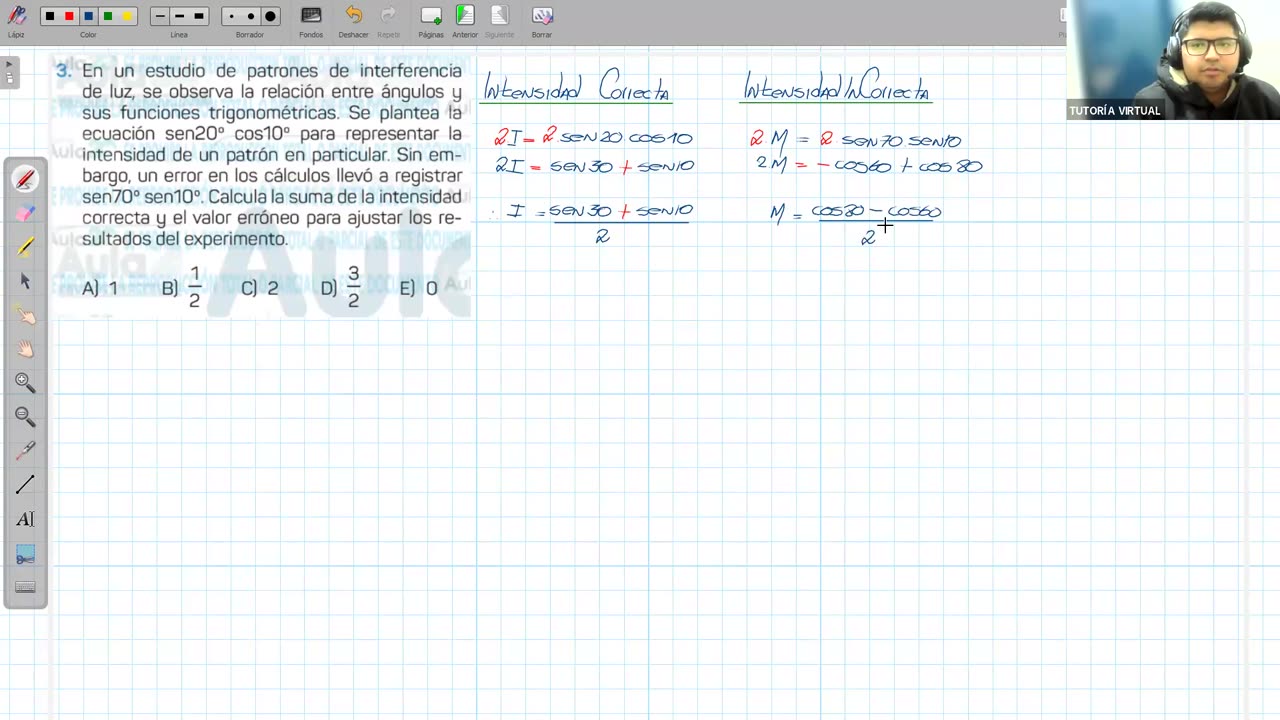 Lápiz
Color
Línea
Borrador
Fondos
Deshacer
Repetir
Páginas
Anterior
Siguiente
Borrar
TUTORÍA VIRTUAL
3. En un estudio de patrones de interferencia
de luz, se observa la relación entre ángulos y
sus funciones trigonométricas. Se plantea la
ecuación sen20° cos10° para representar la
intensidad de un patrón en particular. Sin em-
bargo, un error en los cálculos llevó a registrar
sen70° sen10°. Calcula la suma de la intensidad
correcta y el valor erróneo para ajustar los re-
sultados del experimento.
A) 1 B) 1/2 C) 2 D) 3/2 E) 0
Intensidad Correcta
2I = 2 sen20 cos10
2I = sen30 + sen10
∴ I = sen30 + sen10
2
Intensidad InCorrecta
2 M = 2 sen70 sen10
2M = - cos60 + cos80
M = cos80 - cos60
2
AI